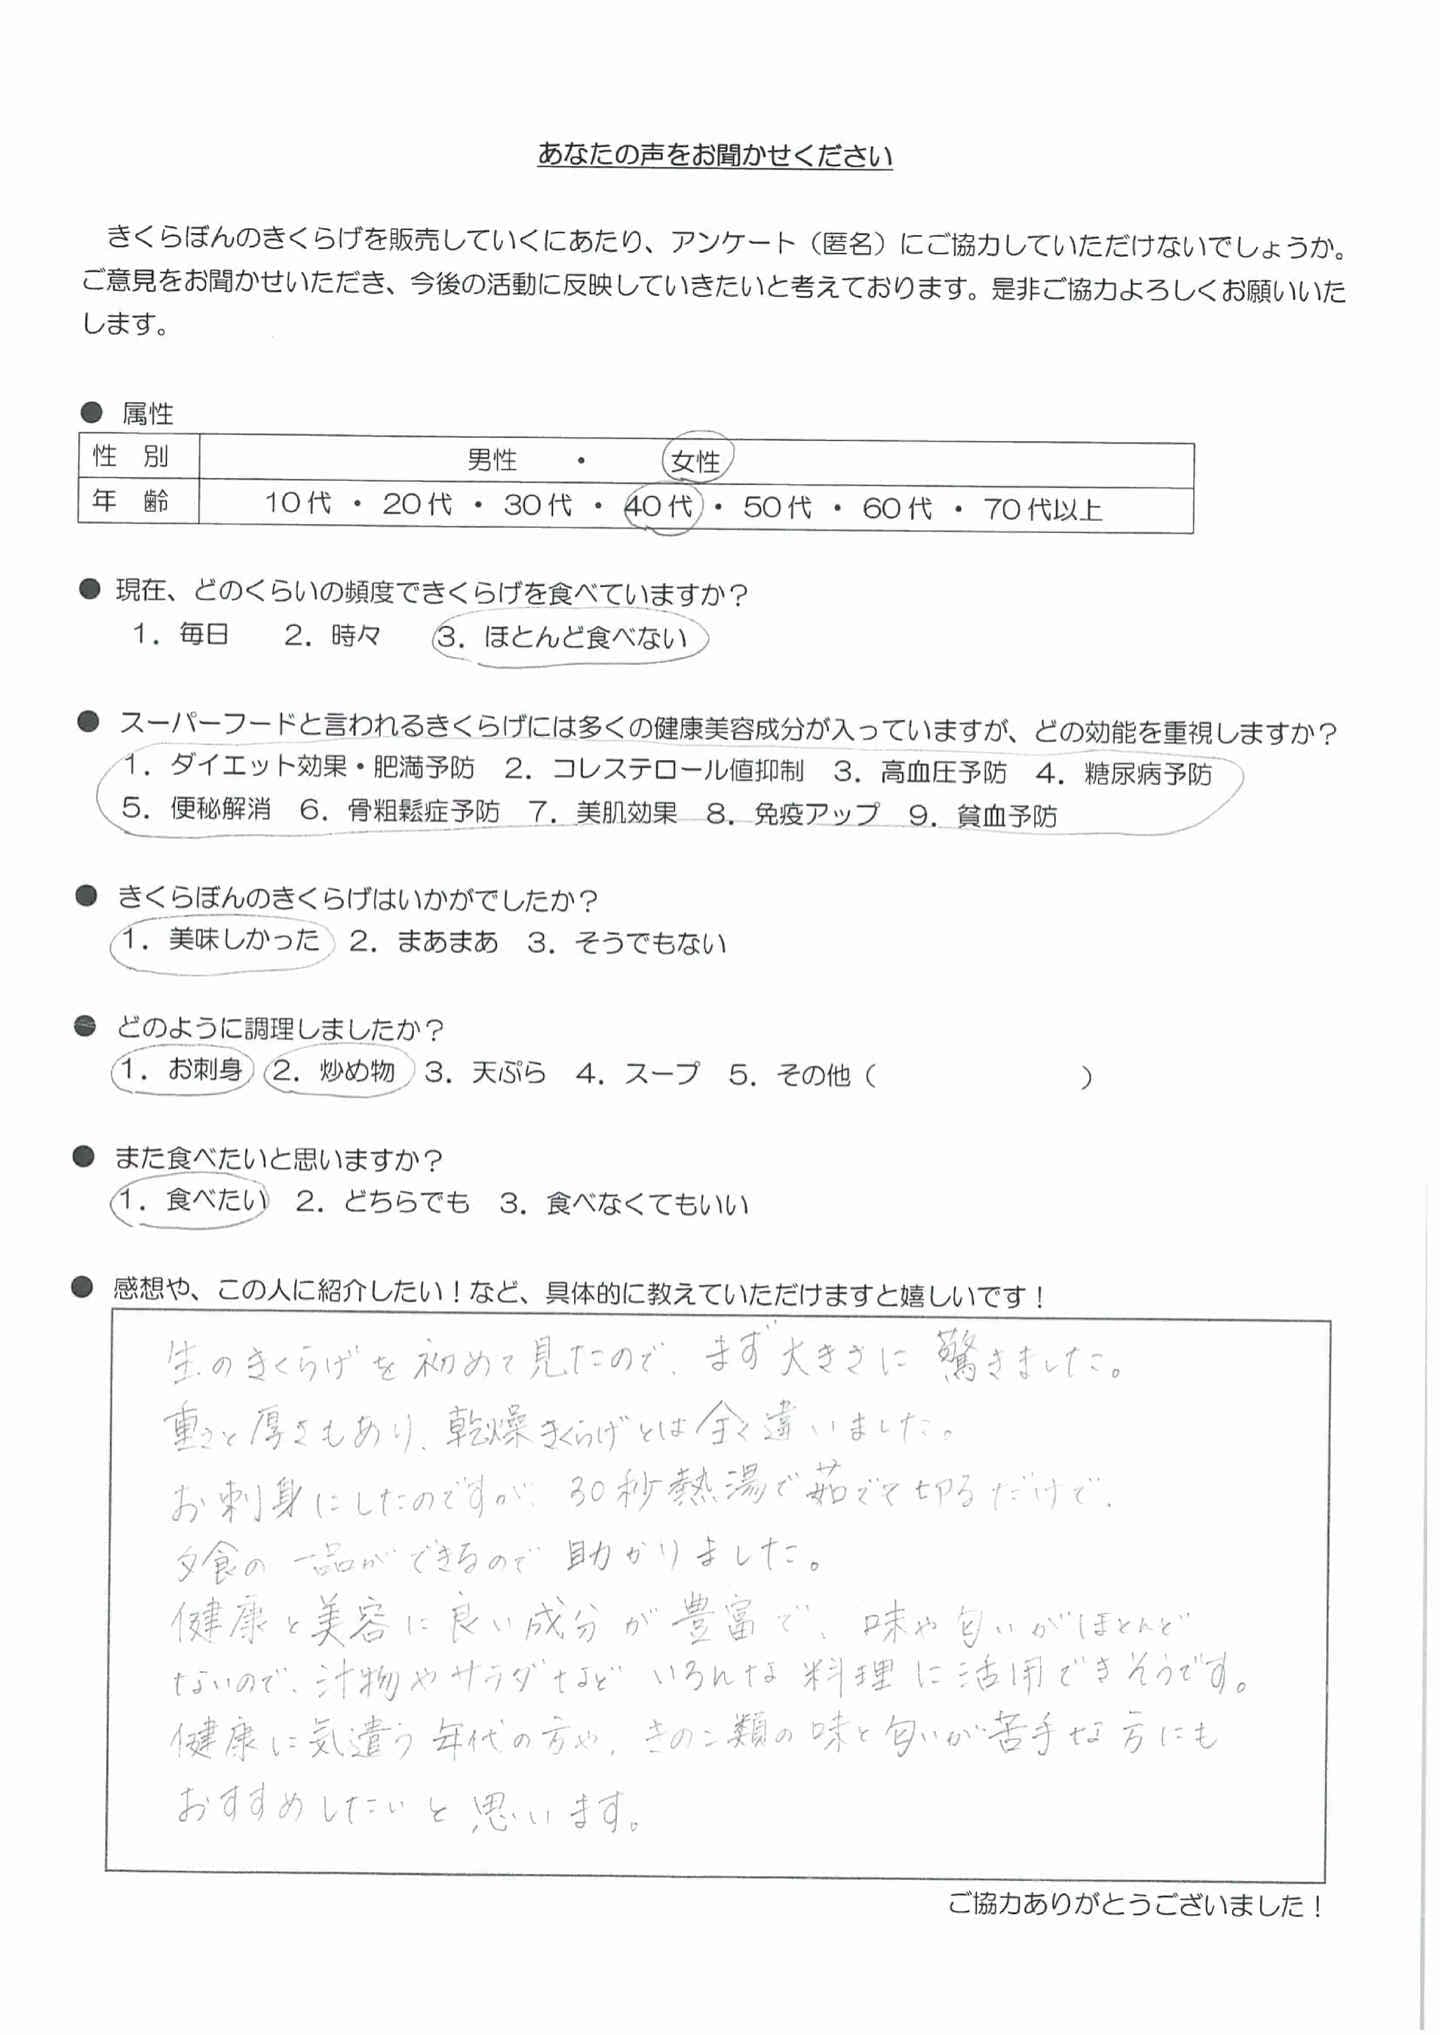 あなたの声をお聞かせください
きくらぼんのきくらげを販売していくにあたり、アンケート（匿名）にご協力していただけないでしょうか。
ご意見をお聞かせいただき、今後の活動に反映していきたいと考えております。是非ご協力よろしくお願いいた
します。
● 属性
性 別 男性 ・ 女性
年 齢 10代 ・ 20代 ・ 30代 ・ 40代 ・ 50代 ・ 60代 ・ 70代以上
● 現在、どのくらいの頻度できくらげを食べていますか？
1．毎日 2．時々 3．ほとんど食べない
● スーパーフードと言われるきくらげには多くの健康美容成分が入っていますが、どの効能を重視しますか？
1．ダイエット効果・肥満予防 2．コレステロール値抑制 3．高血圧予防 4．糖尿病予防
5．便秘解消 6．骨粗鬆症予防 7．美肌効果 8．免疫アップ 9．貧血予防
● きくらぼんのきくらげはいかがでしたか？
1．美味しかった 2．まあまあ 3．そうでもない
● どのように調理しましたか？
1．お刺身 2．炒め物 3．天ぷら 4．スープ 5．その他（ ）
● また食べたいと思いますか？
1．食べたい 2．どちらでも 3．食べなくてもいい
● 感想や、この人に紹介したい！など、具体的に教えていただけますと嬉しいです！
生のきくらげを初めて見たので、まず大きさに驚きました。
重さと厚さもあり、乾燥きくらげとは全く違いました。
お刺身にしたのですが、30秒熱湯で茹でて切るだけで、
夕食の一品ができるので助かりました。
健康と美容に良い成分が豊富で、味や匂いがほとんど
ないので、汁物やサラダなどいろんな料理に活用できそうです。
健康に気遣う年代の方や、きのこ類の味と匂いが苦手な方にも
おすすめしたいと思います。
ご協力ありがとうございました！